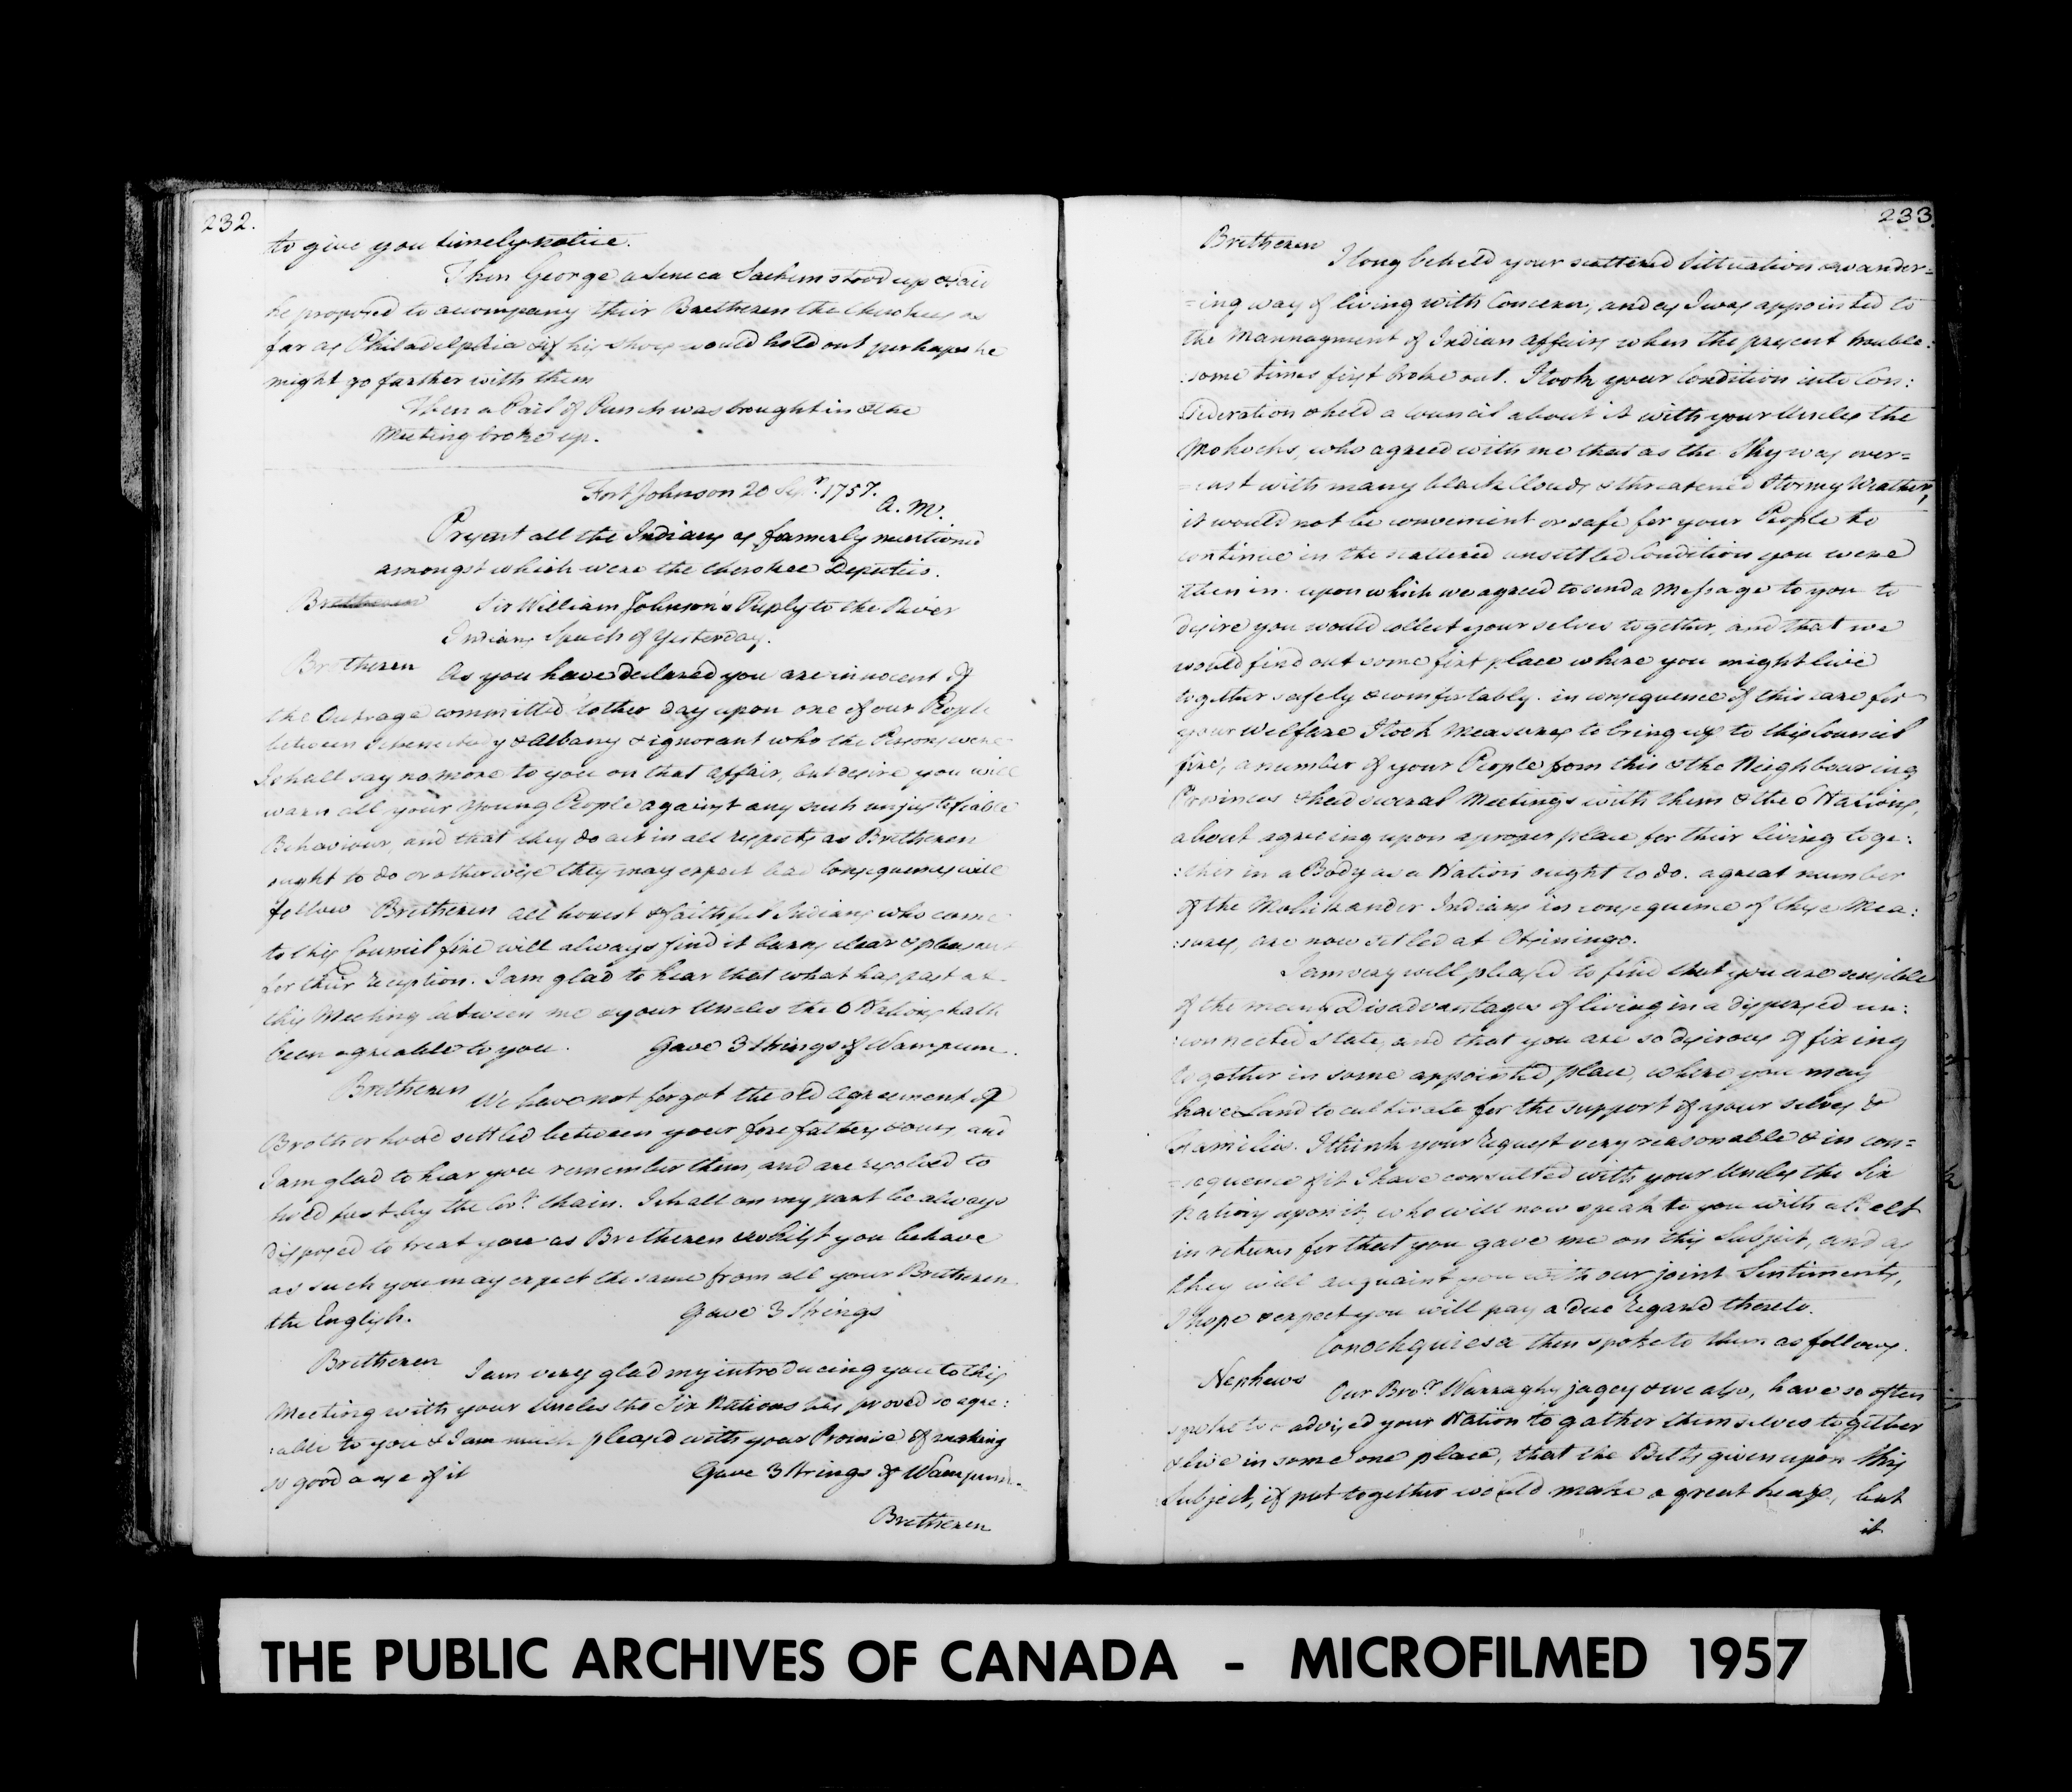 232.
to give you timely notice.
Then George a Seneca Sachem stood up & said
he proposed to accompany their Bretheren the Cherokees as
far as Philadelphia & if his Shoes would hold out perhaps he
might go farther with them
Then a Pail of Punch was brought in & the
Meeting broke up.
Fort Johnson 20 Sepr. 1757.
A. M.
Present all the Indians as formerly mentioned
amongst which were the Cherokee Deputies.
Bretheren Sir William Johnson's Reply to the River
Indians Speech of yesterday.
Bretheren As you have declared you are innocent of
the Outrage committed t'other day upon one of our People
between Schenectady & Albany & ignorant who the Persons were
I shall say no more to you on that affair, but desire you will
warn all your young People against any such unjustefiable
Behaviour, and that they do act in all respects as Bretheren
ought to do or otherwise they may expect bad Consequences will
follow Bretheren all honest & faithful Indians who come
to this Council fire will always find it burns clear & pleasant
for their reception. I am glad to hear that what has past at
this Meeting between me & your Uncles the 6 Nations hath
been agreable to you. Gave 3 Strings of Wampum.
Bretheren We have not forgot the old Agreement of
Brotherhood settled between your fore fathers & ours, and
I am glad to hear you remember them, and are resolved to
hold fast by the Covt. Chain. I shall on my part be always
disposed to treat you as Bretheren & whilst you behave
as such you may expect the same from all your Bretheren
the English. Gave 3 Strings
Bretheren I am very glad my introducing you to this
Meeting with your Uncles the Six Nations has proved so agre:
:able to you & I am much pleased with your Promise of making
so good a use of it Gave 3 Strings of Wampum.
Bretheren
233
Bretheren
I long beheld your scattered Sittuation & wander=
=ing way of living with Concern, and as I was appointed to
the Mannagment of Indian affairs when the present trouble:
:some times first broke out. I took your Condition into Con:
:sideration & held a Council about it with your Uncles the
Mohocks, who agreed with me that as the Sky was over=
=cast with many black Clouds & threatened Stormy Weather,
it would not be convenient or safe for your People to
continue in the scattered unsettled Condition you were
then in. upon which we agreed to send a Message to you to
desire you would collect your selves together, and that we
would find out some fixt place where you might live
together safely & comfortably. in consequence of this care for
your Welfare I took Measures to bring up to this Council
fire, a number of your People from this & the Neighbouring
Provinces & had several Meetings with them & the 6 Nations,
about agreeing upon a proper place for their living toge:
:ther in a Body as a Nation ought to do. a great number
of the Mohikander Indians in consequence of these Mea:
:sures, are now settled at Otsiningo.
I am very well pleased to find that you are sensible
of the many Disadvantages of living in a dispersed un:
:connected State, and that you are so desirous of fixing
together in some appointed place, where you may
have Land to cultivate for the support of your selves &
Families. I think your request very reasonable & in con=
=sequence of it I have consulted with your Uncles the Six
Nations upon it, who will now speak to you with a Belt
in return for that you gave me on this Subject, and as
they will acquaint you with our joint Sentiments,
I hope & expect you will pay a due regard thereto.
Conochquiesa then spoke to them as follows.
Nephews Our Bror. Warraghyjagey & we also, have so often
spoke to & advised your Nation to gather themselves together
& live in some one place, that the Belts given upon this
Subject, if put together would make a great heap, but
it
THE PUBLIC ARCHIVES OF CANADA - MICROFILMED 1957